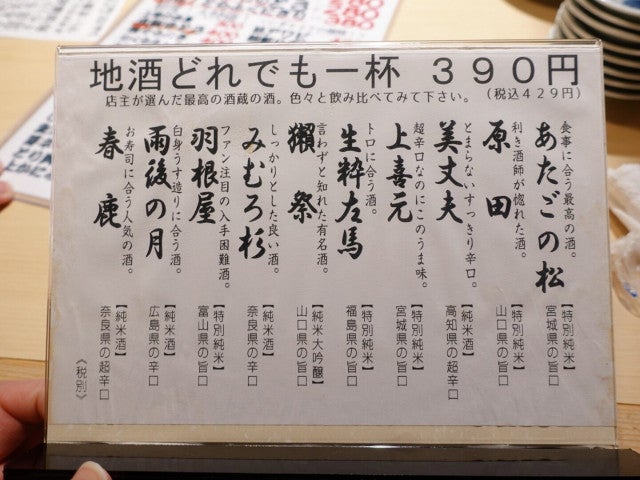 地酒どれでも一杯 ３９０円
店主が選んだ最高の酒蔵の酒。色々と飲み比べてみて下さい。 （税込４２９円）
食事に合う最高の酒。
あたごの松
【特別純米】
宮城県の旨口
利き酒師が惚れた酒。
原田
【特別純米】
山口県の旨口
とまらないすっきり辛口。
美丈夫
【純米酒】
高知県の超辛口
超辛口なのにこのうま味。
上喜元
【特別純米】
宮城県の旨口
トロに合う酒。
生粋左馬
【特別純米】
福島県の旨口
言わずと知れた有名酒。
獺祭
【純米大吟醸】
山口県の旨口
しっかりとした良い酒。
みむろ杉
【純米酒】
奈良県の辛口
ファン注目の入手困難酒。
羽根屋
【特別純米】
富山県の旨口
白身うす造りに合う酒。
雨後の月
【純米酒】
広島県の辛口
お寿司に合う人気の酒。
春鹿
【純米酒】
奈良県の超辛口
《税別》